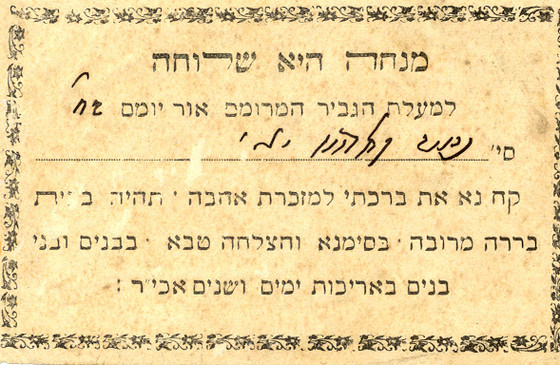 מנחה היא שלוחה
למעלת הגביר המרומם אור יומם
סי'
קח נא את ברכתי למזכרת אהבה · תהיה בעית
בררה מרובה · בסימנא והצלחה טבא · בבנים ובני
בנים באריכות ימים ושנים אכי״ר :